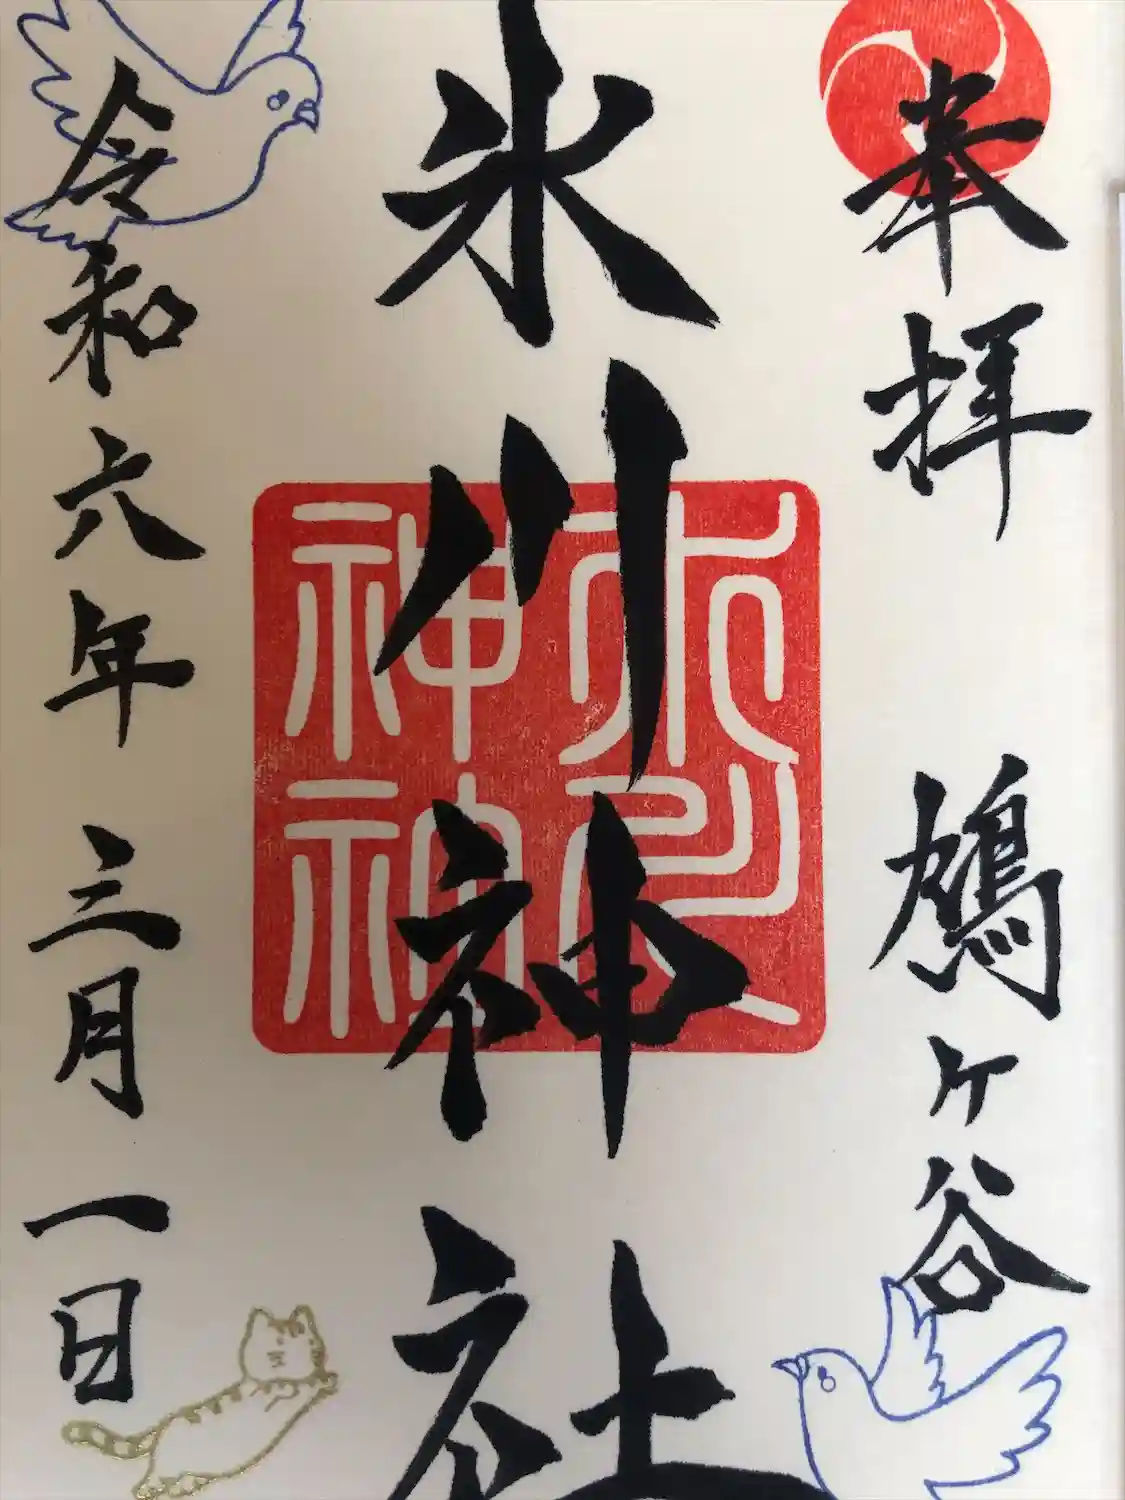 奉拝 鳩ヶ谷
氷川神社
令和六年 三月 一日